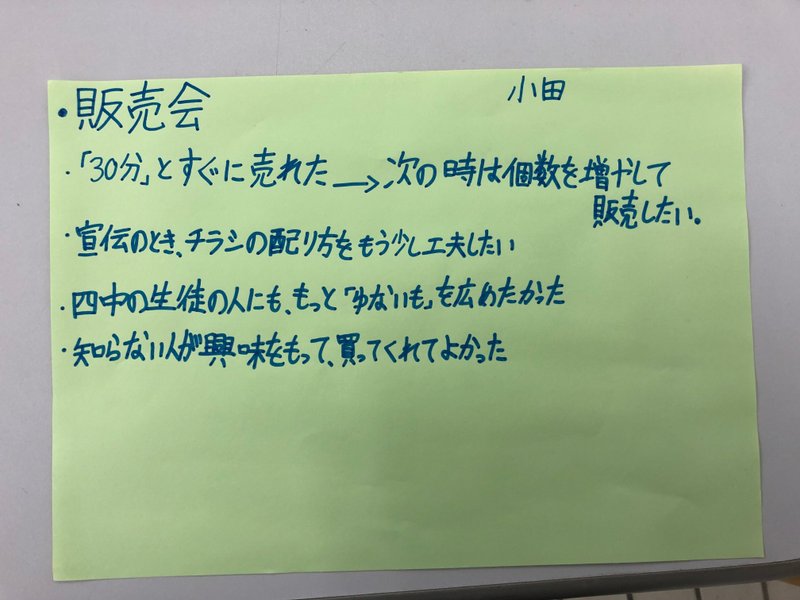 ・販売会
小田
・「30分」とすぐに売れた→次の時は個数を増やして
販売したい。
・宣伝のとき、チラシの配り方をもう少し工夫したい
・四中の生徒の人にも、もっと「ゆないも」を広めたかった
・知らない人が興味をもって、買ってくれてよかった